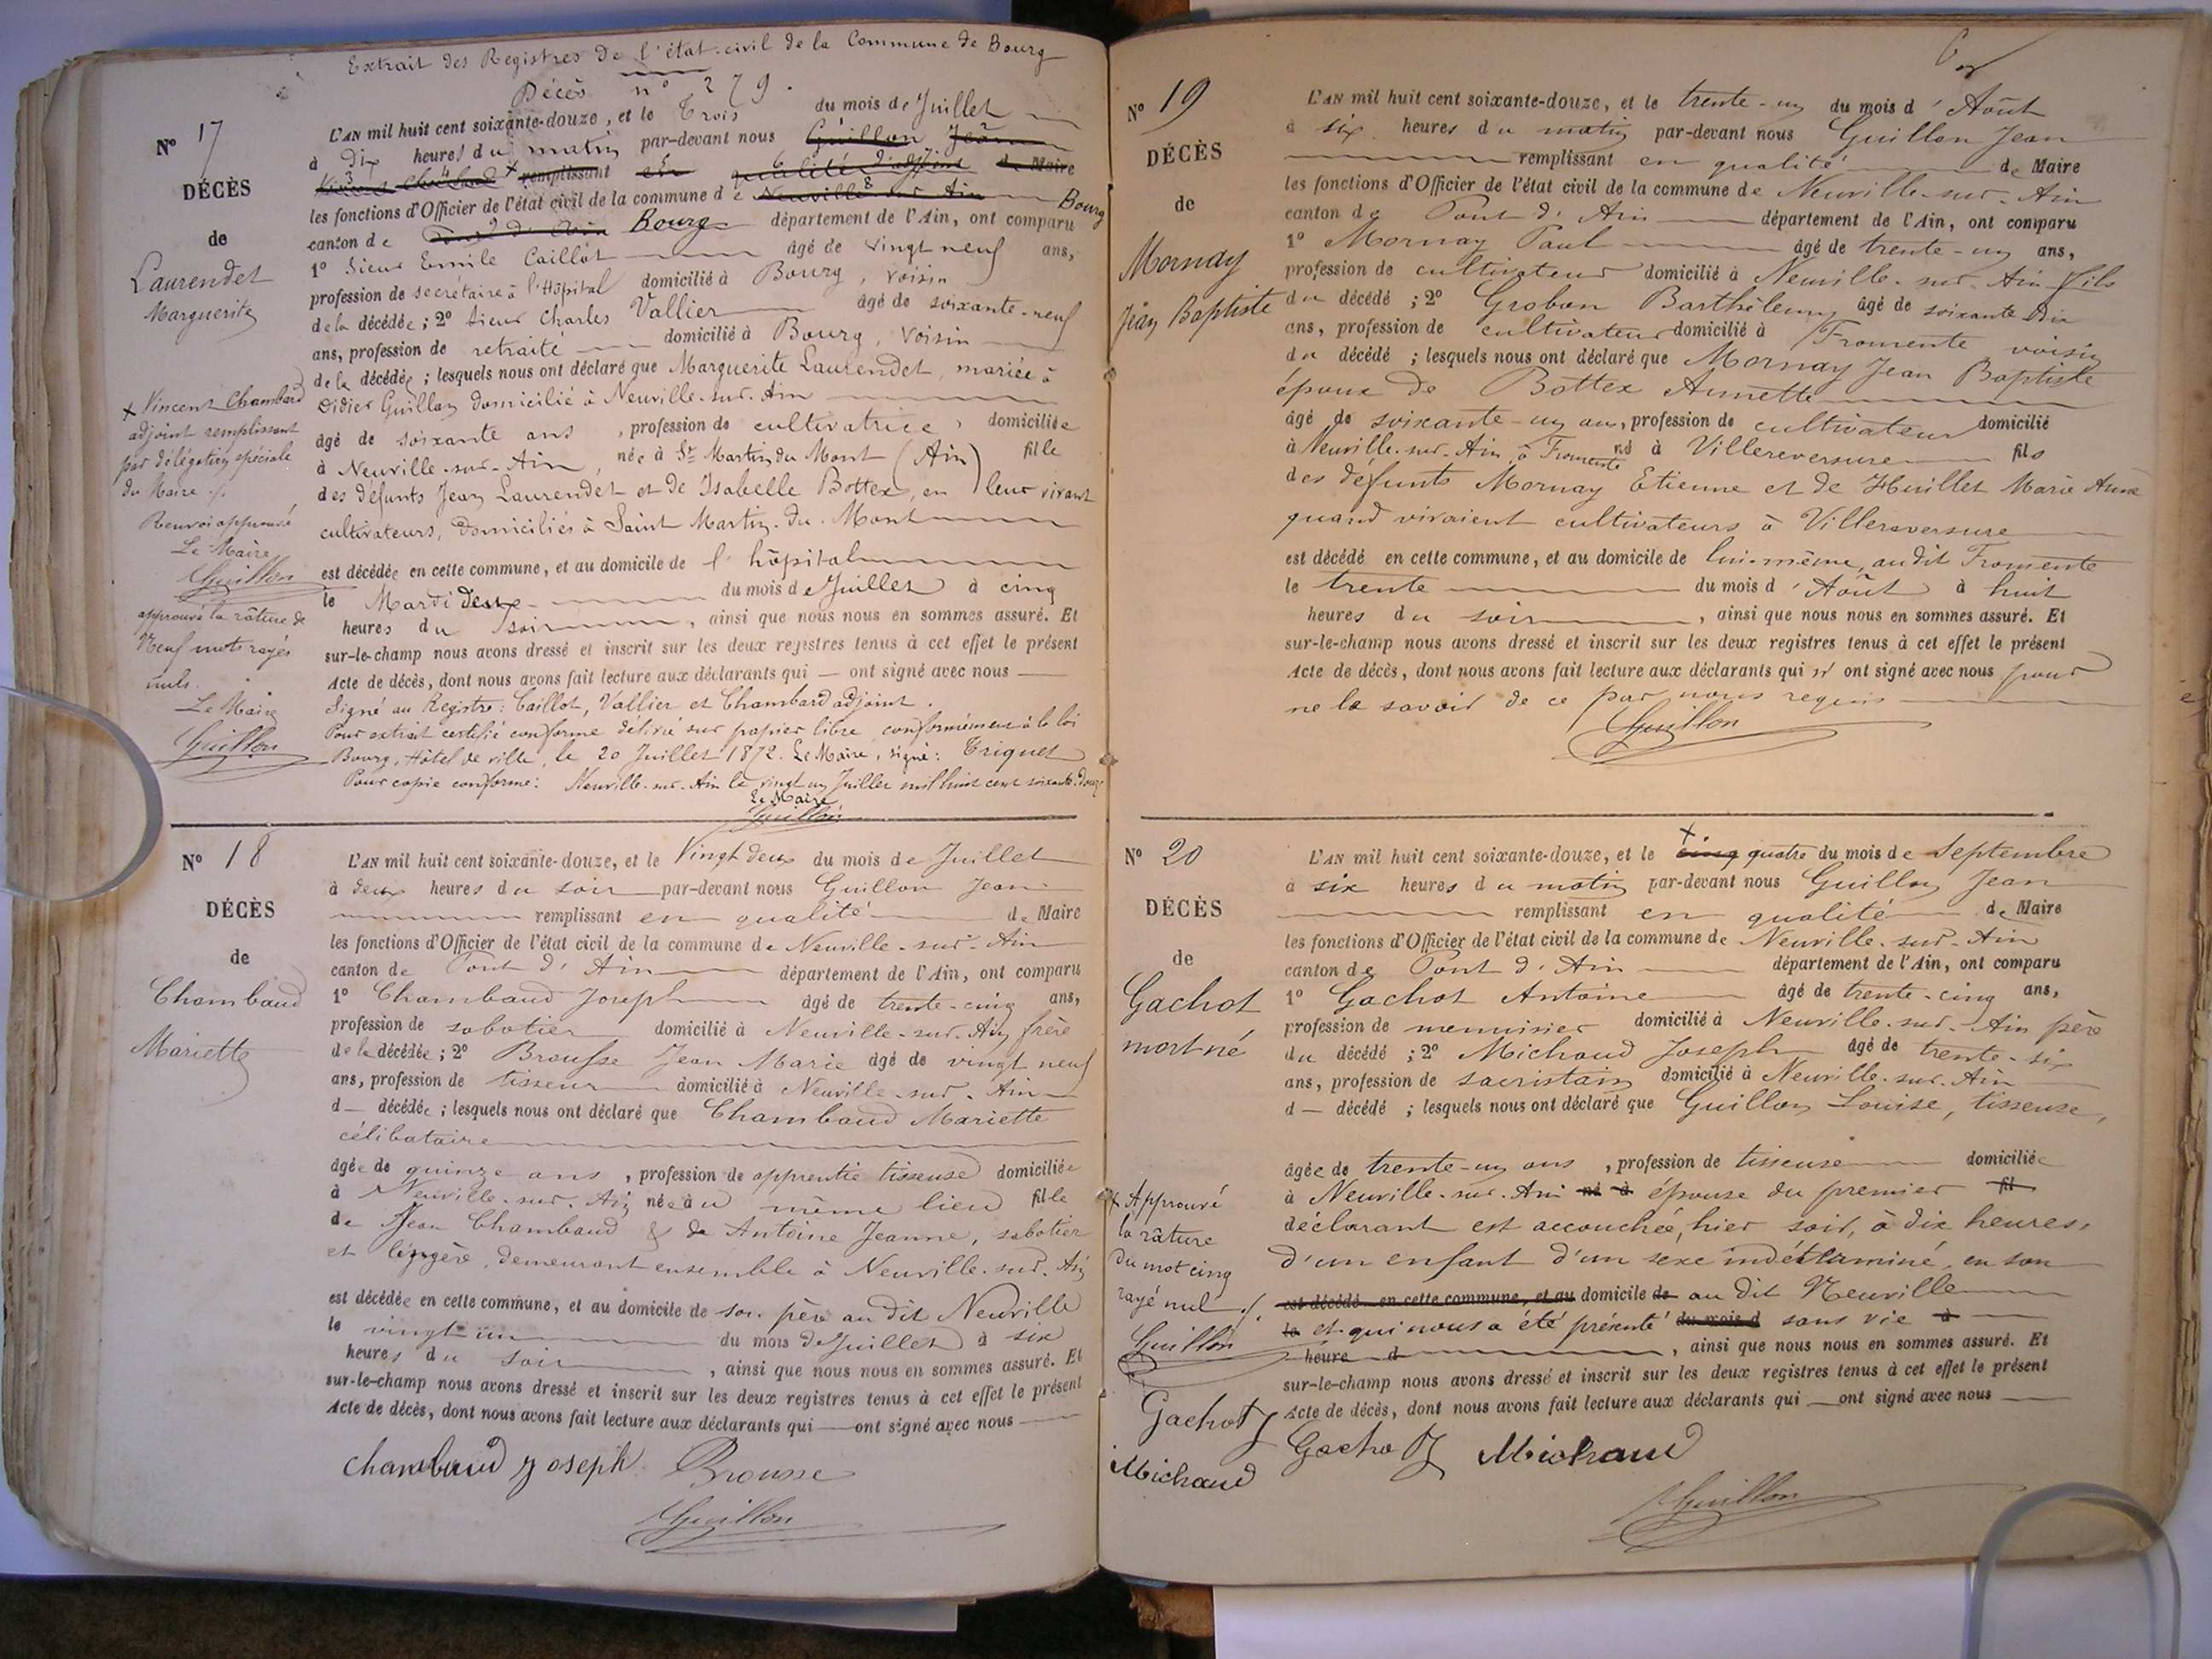 Extrait des Registres de l'état-civil de la Commune de Bourg
Décès n° 279.
N° 17
DÉCÈS
de
Laurendet
Marguerite
L'AN mil huit cent soixante-douze, et le Trois du mois de Juillet
à Dix heures du matin par-devant nous Guillon Jean
Vincent Chambard remplissant en qualité d'adjoint de Maire
les fonctions d'Officier de l'état civil de la commune de Neuville sur Ain Bourg
canton de Pont d'Ain Bourg département de l'Ain, ont comparu
1° Sieur Emile Caillot âgé de vingt neuf ans,
profession de secrétaire à l'Hôpital domicilié à Bourg, voisin
de la décédée ; 2° Sieur Charles Vallier âgé de soixante-neuf
ans, profession de retraité domicilié à Bourg, voisin
de la décédée ; lesquels nous ont déclaré que Marguerite Laurendet, mariée à
Didier Guillon domicilié à Neuville-sur-Ain
âgé de soixante ans, profession de cultivatrice, domiciliée
à Neuville-sur-Ain, née à St Martin du Mont (Ain) fille
des défunts Jean Laurendet et de Isabelle Bottex, en leur vivant
cultivateurs, domiciliés à Saint Martin-du-Mont
est décédée en cette commune, et au domicile de l'hôpital
le Mardi deux du mois de Juillet à cinq
heures du soir, ainsi que nous nous en sommes assuré. Et
sur-le-champ nous avons dressé et inscrit sur les deux registres tenus à cet effet le présent
Acte de décès, dont nous avons fait lecture aux déclarants qui — ont signé avec nous —
Signé au Registre : Caillot, Vallier et Chambard adjoint.
Pour extrait certifié conforme délivré sur papier libre conformément à la loi
Bourg, Hôtel de ville, le 20 Juillet 1872. Le Maire, signé : Triquet
Pour copie conforme : Neuville-sur-Ain le vingt un Juillet mil huit cent soixante-douze
Le Maire
Guillon
x Vincent Chambard
adjoint remplissant
par délégation spéciale
du Maire ./.
Renvoi approuvé
Le Maire
Guillon
approuvé la râture de
Neuf mots rayés
nuls.
Le Maire
Guillon
N° 18
DÉCÈS
de
Chambaud
Mariette
L'AN mil huit cent soixante-douze, et le Vingt deux du mois de Juillet
à deux heures du soir par-devant nous Guillon Jean
remplissant en qualité de Maire
les fonctions d'Officier de l'état civil de la commune de Neuville-sur-Ain
canton de Pont d'Ain département de l'Ain, ont comparu
1° Chambaud Joseph âgé de trente-cinq ans,
profession de sabotier domicilié à Neuville-sur-Ain frère
de la décédée ; 2° Brousse Jean Marie âgé de vingt neuf
ans, profession de tisseur domicilié à Neuville-sur-Ain
d — décédée ; lesquels nous ont déclaré que Chambaud Mariette
célibataire
âgée de quinze ans, profession de apprentie tisseuse domiciliée
à Neuville-sur-Ain née au même lieu fille
de Jean Chambaud & de Antoine Jeanne, sabotier
et lingère, demeurant ensemble à Neuville-sur-Ain
est décédée en cette commune, et au domicile de son père au dit Neuville
le vingt-un du mois de Juillet à six
heures du soir, ainsi que nous nous en sommes assuré. Et
sur-le-champ nous avons dressé et inscrit sur les deux registres tenus à cet effet le présent
Acte de décès, dont nous avons fait lecture aux déclarants qui — ont signé avec nous —
Chambaud Joseph Brousse
Guillon
N° 19
DÉCÈS
de
Mornay
Jean Baptiste
L'AN mil huit cent soixante-douze, et le trente-un du mois d'Août
à six heures du matin par-devant nous Guillon Jean
remplissant en qualité de Maire
les fonctions d'Officier de l'état civil de la commune de Neuville-sur-Ain
canton de Pont d'Ain département de l'Ain, ont comparu
1° Mornay Paul âgé de trente-un ans,
profession de cultivateur domicilié à Neuville-sur-Ain fils
du décédé ; 2° Grobon Barthélemy âgé de soixante dix
ans, profession de cultivateur domicilié à Fromente voisin
du décédé ; lesquels nous ont déclaré que Mornay Jean Baptiste
époux de Bottex Annette
âgé de soixante-un ans, profession de cultivateur domicilié
à Neuville-sur-Ain, à Fromente né à Villereversure fils
des défunts Mornay Etienne et de Huillet Marie Anne
quand vivaient cultivateurs à Villereversure
est décédé en cette commune, et au domicile de lui-même, audit Fromente
le trente du mois d'Août à huit
heures du soir, ainsi que nous nous en sommes assuré. Et
sur-le-champ nous avons dressé et inscrit sur les deux registres tenus à cet effet le présent
Acte de décès, dont nous avons fait lecture aux déclarants qui n'ont signé avec nous pour
ne le savoir de ce par nous requis
Guillon
N° 20
DÉCÈS
de
Gachot
mort-né
L'AN mil huit cent soixante-douze, et le x cinq quatre du mois de Septembre
à six heures du matin par-devant nous Guillon Jean
remplissant en qualité de Maire
les fonctions d'Officier de l'état civil de la commune de Neuville-sur-Ain
canton de Pont d'Ain département de l'Ain, ont comparu
1° Gachot Antoine âgé de trente-cinq ans,
profession de menuisier domicilié à Neuville-sur-Ain père
du décédé ; 2° Michaud Joseph âgé de trente-six
ans, profession de sacristain domicilié à Neuville-sur-Ain
d — décédé ; lesquels nous ont déclaré que Guillon Louise, tisseuse,
âgée de trente-un ans, profession de tisseuse domiciliée
à Neuville-sur-Ain né à épouse du premier fil
déclarant est accouchée, hier soir, à dix heures,
d'un enfant d'un sexe indéterminé, en son
est décédé en cette commune, et au domicile de au dit Neuville
le et qui nous a été présenté du mois d sans vie à
heure d, ainsi que nous nous en sommes assuré. Et
sur-le-champ nous avons dressé et inscrit sur les deux registres tenus à cet effet le présent
Acte de décès, dont nous avons fait lecture aux déclarants qui — ont signé avec nous —
Gachot Michaud
Guillon
x Approuvé
la râture
du mot cinq
rayé nul ./.
Guillon
Gachot
Michaud